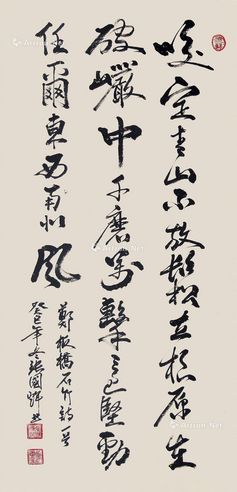 咬定青山不放鬆立根原在
破巖中千磨萬擊還堅勁
任爾東西南北風
鄭板橋石竹詩一首
癸巳年冬張國輝書